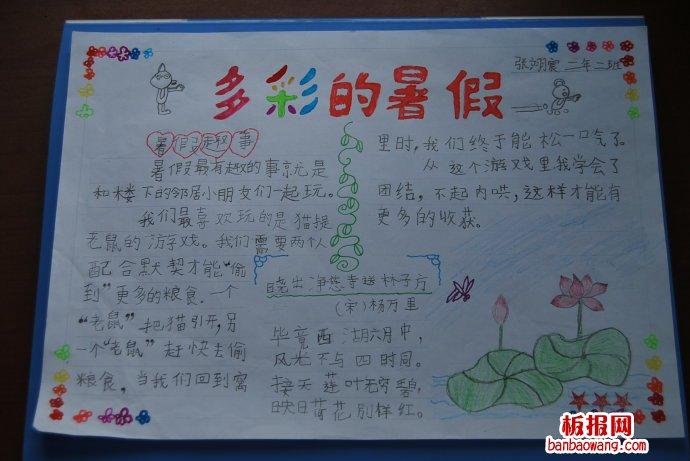 多彩的暑假
张翊宸 二年二班
暑假趣事
暑假最有趣的事就是
和楼下的邻居小朋友们一起玩。
我们最喜欢玩的是猫捉
老鼠的游戏。我们需要两队
配合默契才能“偷
到”更多的粮食。一个
“老鼠”把猫引开，另
一个“老鼠”赶快去偷
粮食，当我们回到窝
里时，我们终于能松一口气了。
从这个游戏里我学会了
团结，不起内哄，这样才能有
更多的收获。
晓出净慈寺送林子方
（宋）杨万里
毕竟西湖六月中，
风光不与四时同。
接天莲叶无穷碧，
映日荷花别样红。
板报网
banbaowang.com